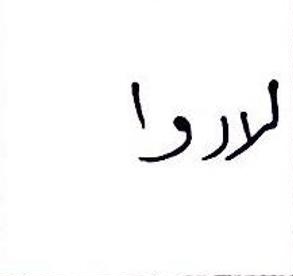 لاروا